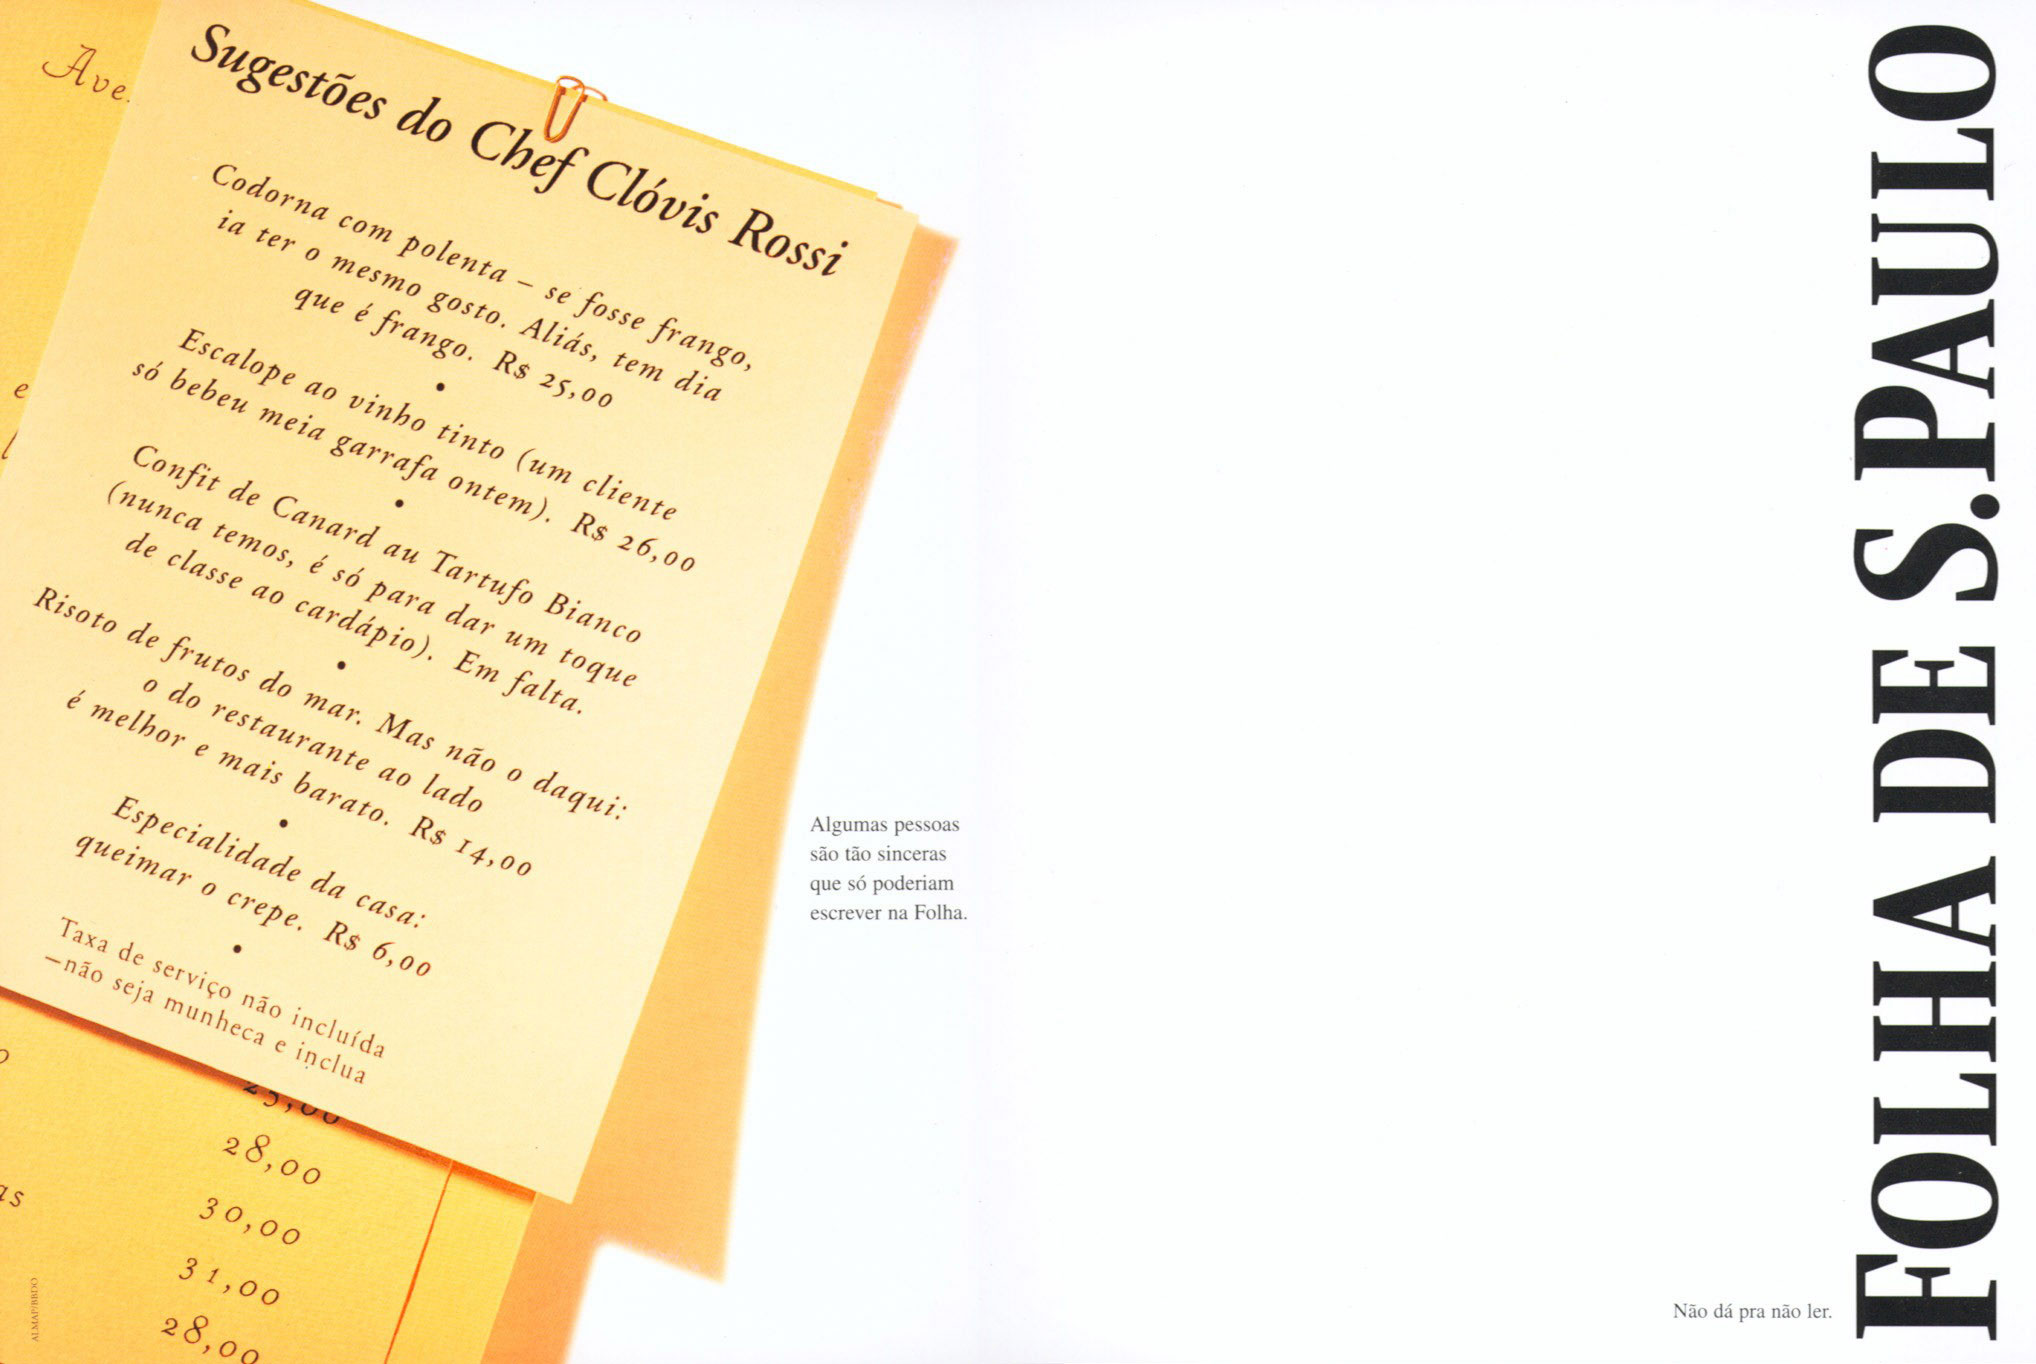 Ave
Sugestões do Chef Clóvis Rossi
Codorna com polenta – se fosse frango,
ia ter o mesmo gosto. Aliás, tem dia
que é frango. R$ 25,00
•
Escalope ao vinho tinto (um cliente
só bebeu meia garrafa ontem). R$ 26,00
•
Confit de Canard au Tartufo Bianco
(nunca temos, é só para dar um toque
de classe ao cardápio). Em falta.
•
Risoto de frutos do mar. Mas não o daqui:
o do restaurante ao lado
é melhor e mais barato. R$ 14,00
•
Especialidade da casa:
queimar o crepe. R$ 6,00
•
Taxa de serviço não incluída
–não seja munheca e inclua
28,00
30,00
as
31,00
28,00
ALMAP/BBDO
Algumas pessoas
são tão sinceras
que só poderiam
escrever na Folha.
Não dá pra não ler.
FOLHA DE S.PAULO